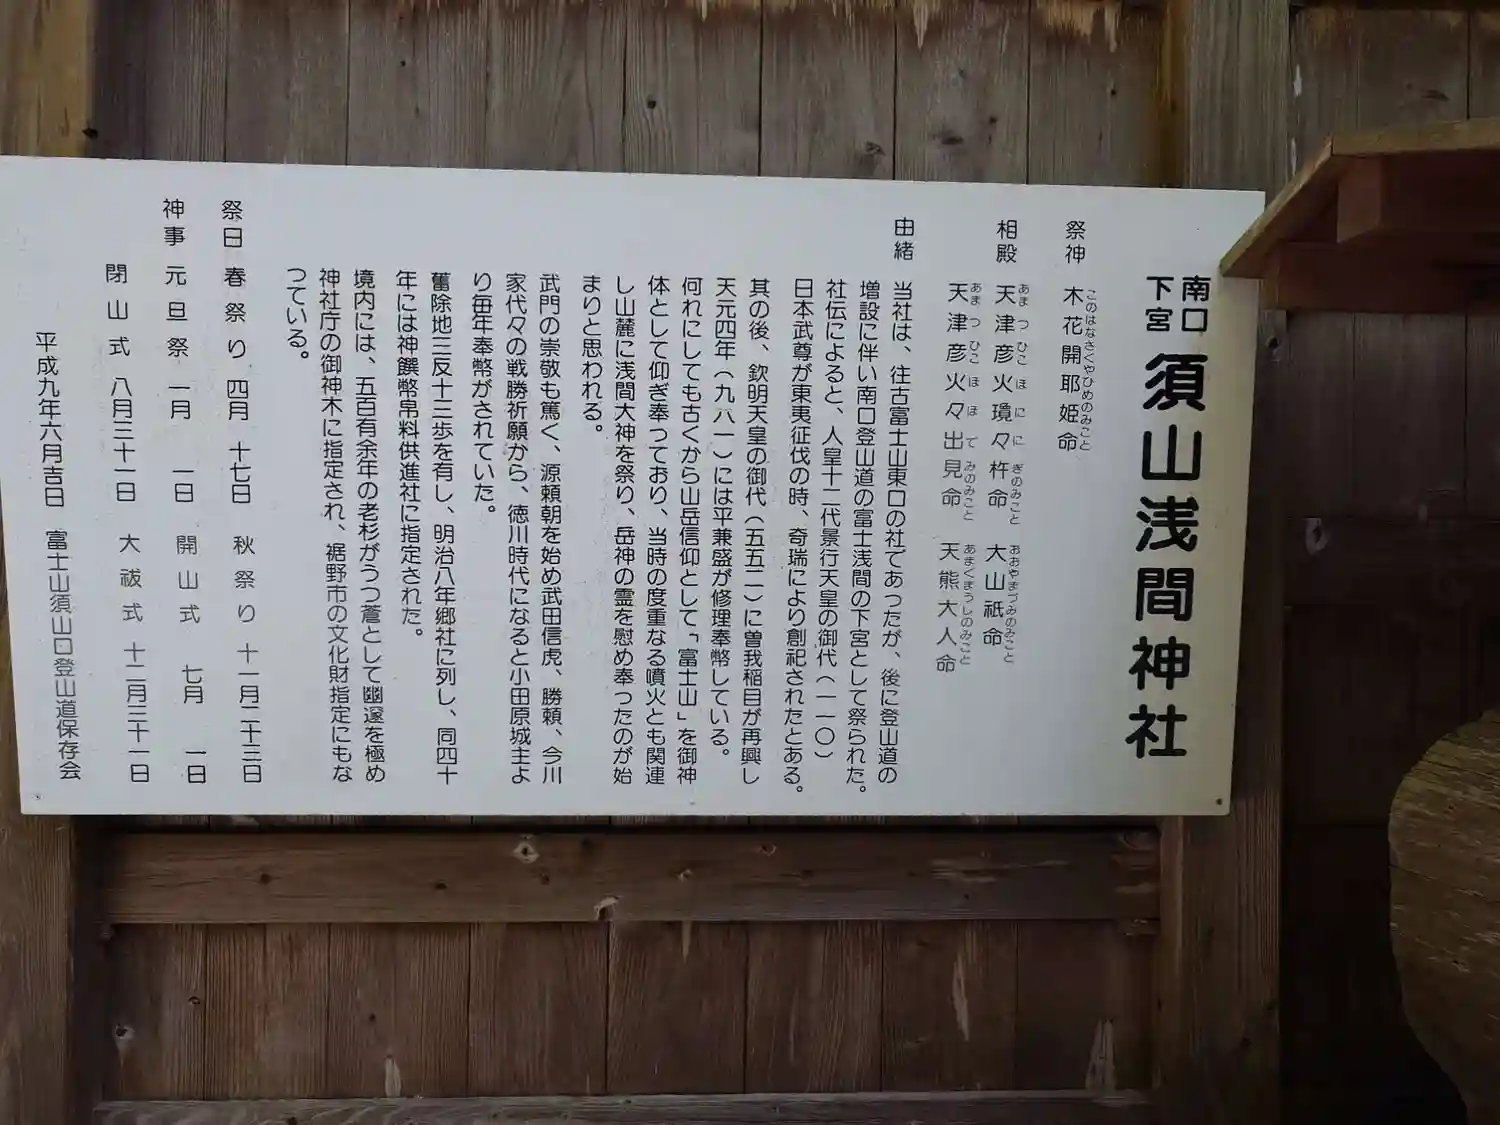 南口
下宮
須山浅間神社
祭神 木花開耶姫命
このはなさくやひめのみこと
相殿 天津彦火瓊々杵命 大山祇命
あまつひこほににぎのみこと おおやまづみのみこと
天津彦火々出見命 天熊大人命
あまつひこほほでみのみこと あまくまうしのみこと
由緒 当社は、往古富士山東口の社であったが、後に登山道の
増設に伴い南口登山道の富士浅間の下宮として祭られた。
社伝によると、人皇十二代景行天皇の御代(一一〇)
日本武尊が東夷征伐の時、奇瑞により創祀されたとある。
其の後、欽明天皇の御代(五五二)に曽我稲目が再興し
天元四年(九八一)には平兼盛が修理奉幣している。
何れにしても古くから山岳信仰として「富士山」を御神
体として仰ぎ奉つており、当時の度重なる噴火とも関連
し山麓に浅間大神を祭り、岳神の霊を慰め奉ったのが始
まりと思われる。
武門の崇敬も篤く、源頼朝を始め武田信虎、勝頼、今川
家代々の戦勝祈願から、徳川時代になると小田原城主よ
り毎年奉幣がされていた。
奮除地三反十三歩を有し、明治八年郷社に列し、同四十
年には神饌幣帛料供進社に指定された。
境内には、五百有余年の老杉がうつ蒼として幽邃を極め
神社庁の御神木に指定され、裾野市の文化財指定にもな
つている。
祭日 春祭り 四月 十七日 秋祭り 十一月二十三日
神事 元旦祭 一月 一日 開山式 七月 一日
閉山式 八月三十一日 大祓式 十二月三十一日
平成九年六月吉日 富士山須山口登山道保存会